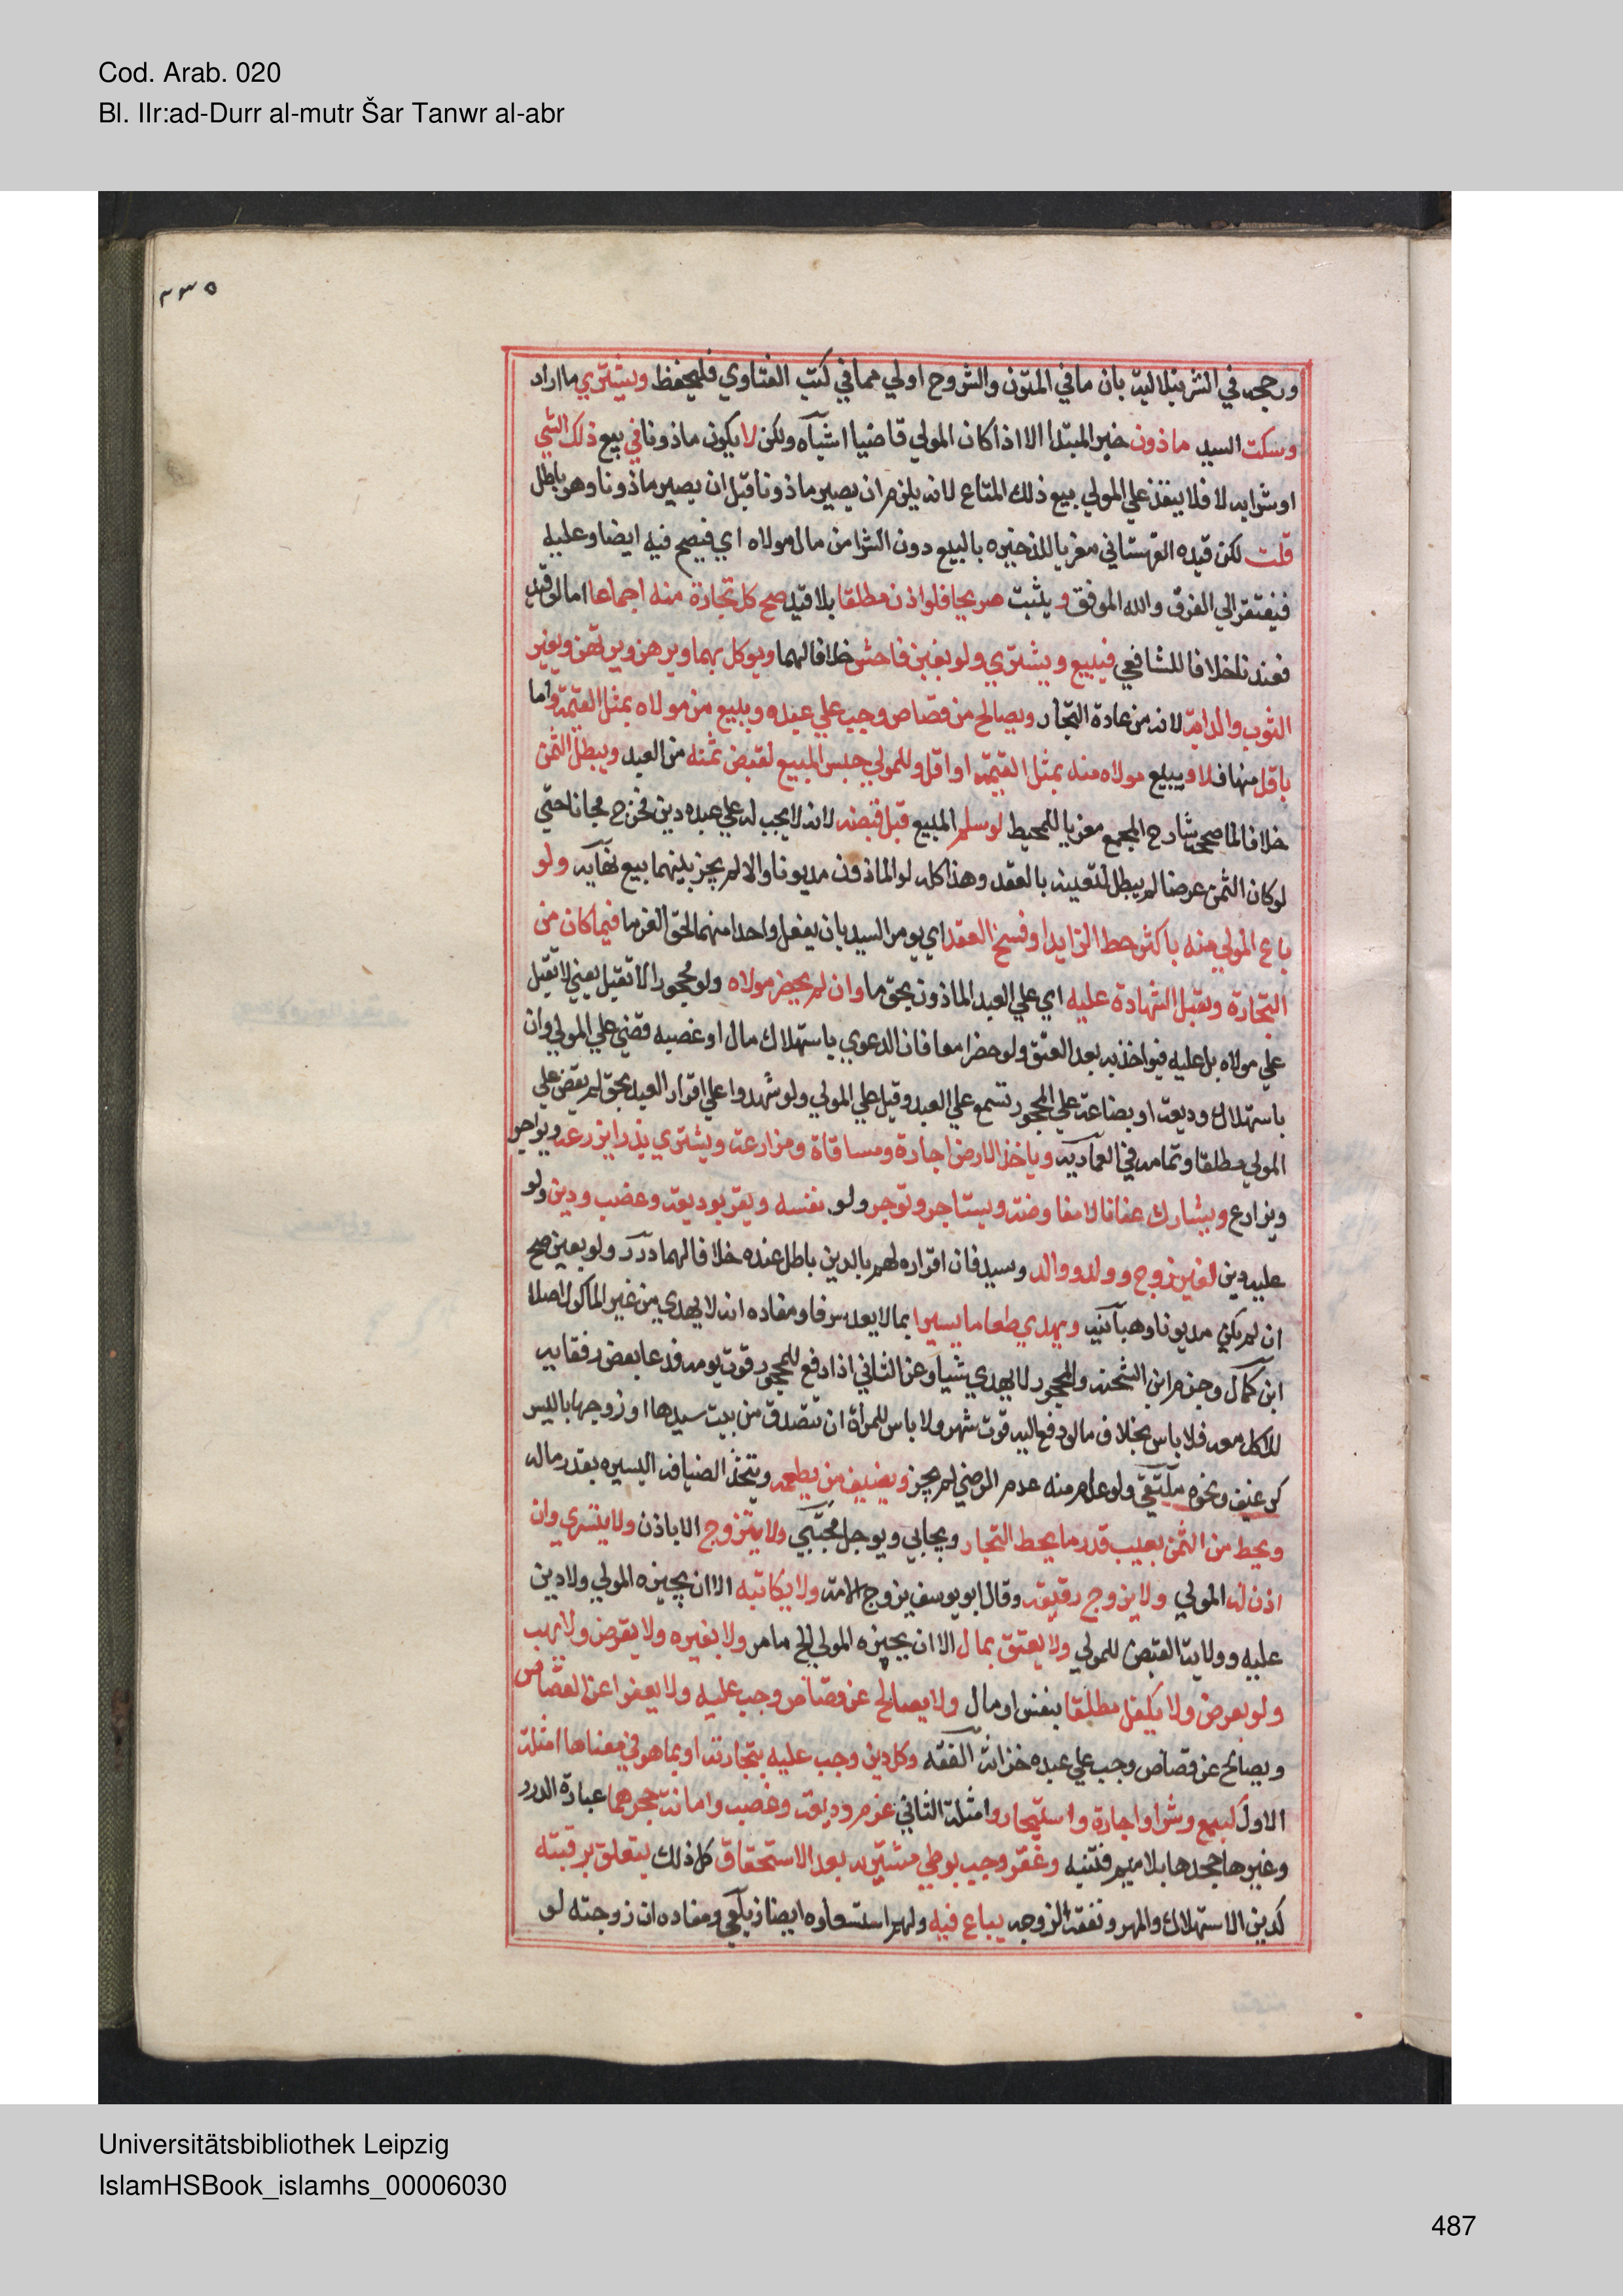 Cod. Arab. 020
Bl. IIr:ad-Durr al-mutr Šar Tanwr al-abr
٢٣٥
ورجحه في الشرنبلاليه بان ما في المتون والشروح اولي مما في كتب الفتاوي فليحفظ ويشتري ما اراد
وسكت السيد ماذون خبر المبتدا الا اذا كان المولي قاضيا اشباه ولكن لا يكون ماذونا في بيع ذلك الشي
او شرايه لا فلا ينفذ علي المولي بيع ذلك المتاع لانه يلزم ان يصير ماذونا قبل ان يصير ماذونا وهو باطل
قلت لكن قيده القهستاني معزيا للذخيره بالبيع دون الشرا من مال مولاه اي فيصح فيه ايضا وعليه
فيفتقر الي الفرق والله الموفق ويثبت صريحا فلو اذن مطلقا بلا قيد صح كل تجارة منه اجماعا اما لو قيد
فعندنا خلافا للشافعي فيبيع ويشتري ولو بغبن فاحش خلافا لهما ويوكل بهما ويرهن ويرتهن ويعير
الثوب والدابة لانه من عادة التجار ويصالح من قصاص وجب علي عبده ويبيع من مولاه بمثل القيمة واما
باقل منها فلا ويبيع مولاه منه بمثل القيمة او اقل وللمولي حبس المبيع لقبض ثمنه من العبد ويبطل الثمن
خلافا لما صححه شارح المجمع معزيا للمحيط لو سلم المبيع قبل قبضه لانه لا يجب له علي عبده دين فخرج مجانا حتي
لو كان الثمن عرضا لم يبطل لتعينه بالعقد وهذا كله لو الماذون مديونا والا لم يجز بينهما بيع نهايه ولو
باع المولي منه باكثر حط الزايد او فسخ العقد اي يومر السيد بان يفعل واحدا منهما لحق الغرما فيما كان من
التجارة وتقبل الشهادة عليه اي علي العبد الماذون بحق ما وان لم يحضر مولاه ولو محجورا لا تقبل يعني لا تقبل
علي مولاه بل عليه فيواخذ به بعد العتق ولو حضرا معا فان الدعوي باستهلاك مال او غصبه قضي علي المولي وان
باستهلاك وديعة او بضاعة علي المحجور تسمع علي العبد وقيل علي المولي ولو شهدوا علي اقرار العبد بحق لم يقض علي
المولي مطلقا وتمامه في العماديه وياخذ الارض اجارة ومساقاة ومزارعة ويشتري بذرا يزرعه ويواجر
ويزارع ويشارك عنانا لا مفاوضة ويستاجر وتوجر ولو نفسه ويقر بوديعة وغصب ودين ولو
عليه دين لغير زوج وولد ووالد وسيد فان اقراره لهم بالدين باطل عنده خلافا لهما درر ولو بعين صح
ان لم يكن مديونا وهبانيه ويهدي طعاما يسيرا بما لا يعد سرفا ومفاده انه لا يهدي من غير الماكول اصلا
ابن كمال وجزم ابن الشحنه والمحجور لا يهدي شيا وعن الثاني اذا دفع للمحجور قوت يومه فدعا بعض رفقايه
للاكل معه فلا باس بخلاف ما لو دفع اليه قوت شهر ولا باس للمراة ان تتصدق من بيت سيدها او زوجها باليسير
كرغيف ونحوه ملتقي ولو علم منه عدم الرضي لم يجز ويضيف من يطعمه ويتخذ الضيافه اليسيره بقدر ماله
ويحط من الثمن بعيب قدر ما يحط التجار ويحابي ويوجل مجتبي ولا يتزوج الا باذن ولا يتسري وان
اذن له المولي ولا يزوج رقيقه وقال ابو يوسف يزوج الامة ولا يكاتبه الا ان يجيزه المولي ولا دين
عليه وولاية القبض للمولي ولا يعتق بمال الا ان يجيزه المولي الخ ما مر ولا بغيره ولا يقرض ولا يهب
ولو بعوض ولا يكفل مطلقا بنفس او مال ولا يصالح عن قصاص وجب عليه ولا يعفوا عن القصاص
ويصالح عن قصاص وجب علي عبده خزانة الفقه وكل دين وجب عليه بتجارته او بما هو في معناها امثلة
الاول كبيع وشرا واجارة واستيجار وامثلة الثاني غرم وديعة وغصب وامانة جحدهما عبارة الدرر
وغيرها جحدها بلا ميم فتنبه وعقر وجب بوطي مشتريه بعد الاستحقاق كل ذلك يتعلق برقبته
كدين الاستهلاك والمهر ونفقة الزوجه يباع فيه ولهم استسعاوه ايضا زيلعي ومفاده ان زوجته لو
Universitätsbibliothek Leipzig
IslamHSBook_islamhs_00006030
487